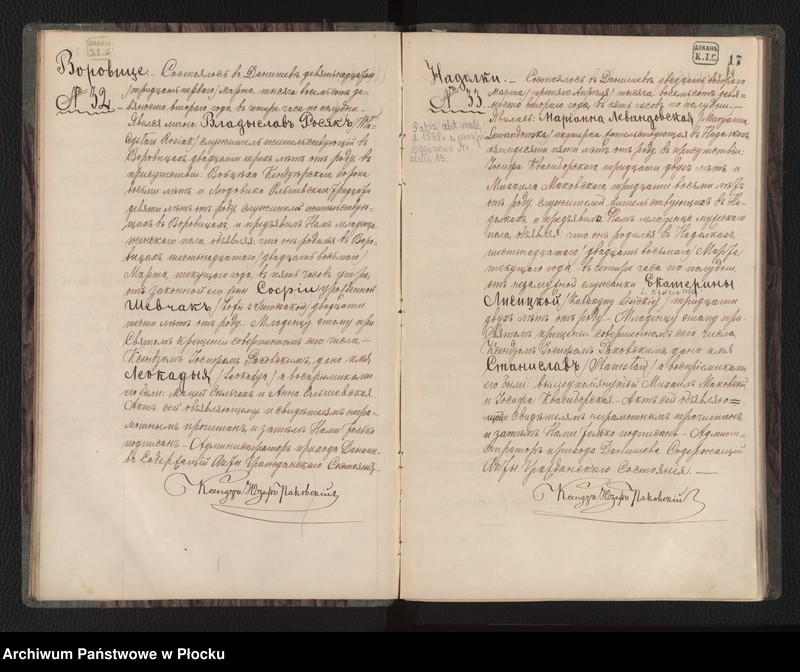 Воровице. — Состоялось въ Данишевѣ девятнадцатаго
№ 32.
/тридцать перваго/ Марта, тысяча восемьсотъ де-
вяносто втораго года, въ четыре часа по полудни. —
Явился лично Владыславъ Росякъ, /Wła-
dysław Rosiak/ служитель жительствующій въ
Воровицахъ, двадцати трехъ лѣтъ отъ роду, въ
присутствіи Войцѣха
восьми лѣтъ и Людовика Ольшевскаго тридцати
девяти лѣтъ отъ роду, служителей жительствую-
щихъ въ Воровицахъ, и предъявилъ Намъ младенца
женскаго пола, объявляя что онъ родился въ Воро-
вицахъ шестнадцатаго /двадцать восьмаго/
Марта, текущаго года, въ пять часовъ утра,
отъ законной его жены Софіи урожденной
Шевчакъ, /Zofii z / двадцати
шести лѣтъ отъ роду. — Младенцу этому при
Святомъ крещеніи совершенномъ сего числа, —
Ксендзомъ Іосифомъ Раковскимъ, дано имя
Леокадыя /Leokadya/ а воспріемниками
его были: и Анна Ольшевская.
Актъ сей объявляющему и свидѣтелямъ негра-
мотнымъ прочитанъ, и затѣмъ Нами только
подписанъ. — Администраторъ прихода Данише-
во Содержащій Акты Гражданскаго Состоянія. —
Ксендзъ Юзефъ Раковскій
ДЕКАНЪ
К. І. С.
17
Надолки. — Состоялось въ Данишевѣ двадцать втораго
№ 33.
Марта /третяго Апрѣля/ тысяча восемьсотъ девя-
носто втораго года, въ пять часовъ по полудни. —
Явилась: Маріанна Левандовская, /Maryanna
Lewandowska/ акушерка жительствующая въ Надолкахъ,
пятидесяти пяти лѣтъ отъ роду, въ присутствіи:
Іосифа Квасиборскаго тридцати двухъ лѣтъ и
Михаила Маковскаго тридцати восьми лѣтъ
отъ роду, служителей жительствующихъ въ На-
долкахъ, и предъявила Намъ младенца мужскаго
пола, объявляя: что онъ родился въ Надолкахъ,
шестнадцатаго /двадцать восьмаго/ Марта,
текущаго года, въ четыре часа по полудни,
отъ незамужной служанки Екатерины
Лисицкой /Katarzyny Lisickiej/ тридцати
двухъ лѣтъ отъ роду. — Младенцу этому при
Святомъ крещеніи совершенномъ сего числа,
Ксендзомъ Іосифомъ Раковскимъ дано имя
Станиславъ, /Stanisław/ а воспріемниками
его были: вышеупомянутый Михаилъ Маковскій
и Іосифа Квасиборская. — Актъ сей объявляю=
щей и Свидѣтелямъ неграмотнымъ прочитанъ,
и затѣмъ Нами только подписанъ. — Админи-
страторъ прихода Данишева Содержащій
Акты Гражданскаго Состоянія. —
Ксендзъ Юзефъ Раковскій
Archiwum Państwowe w Płocku